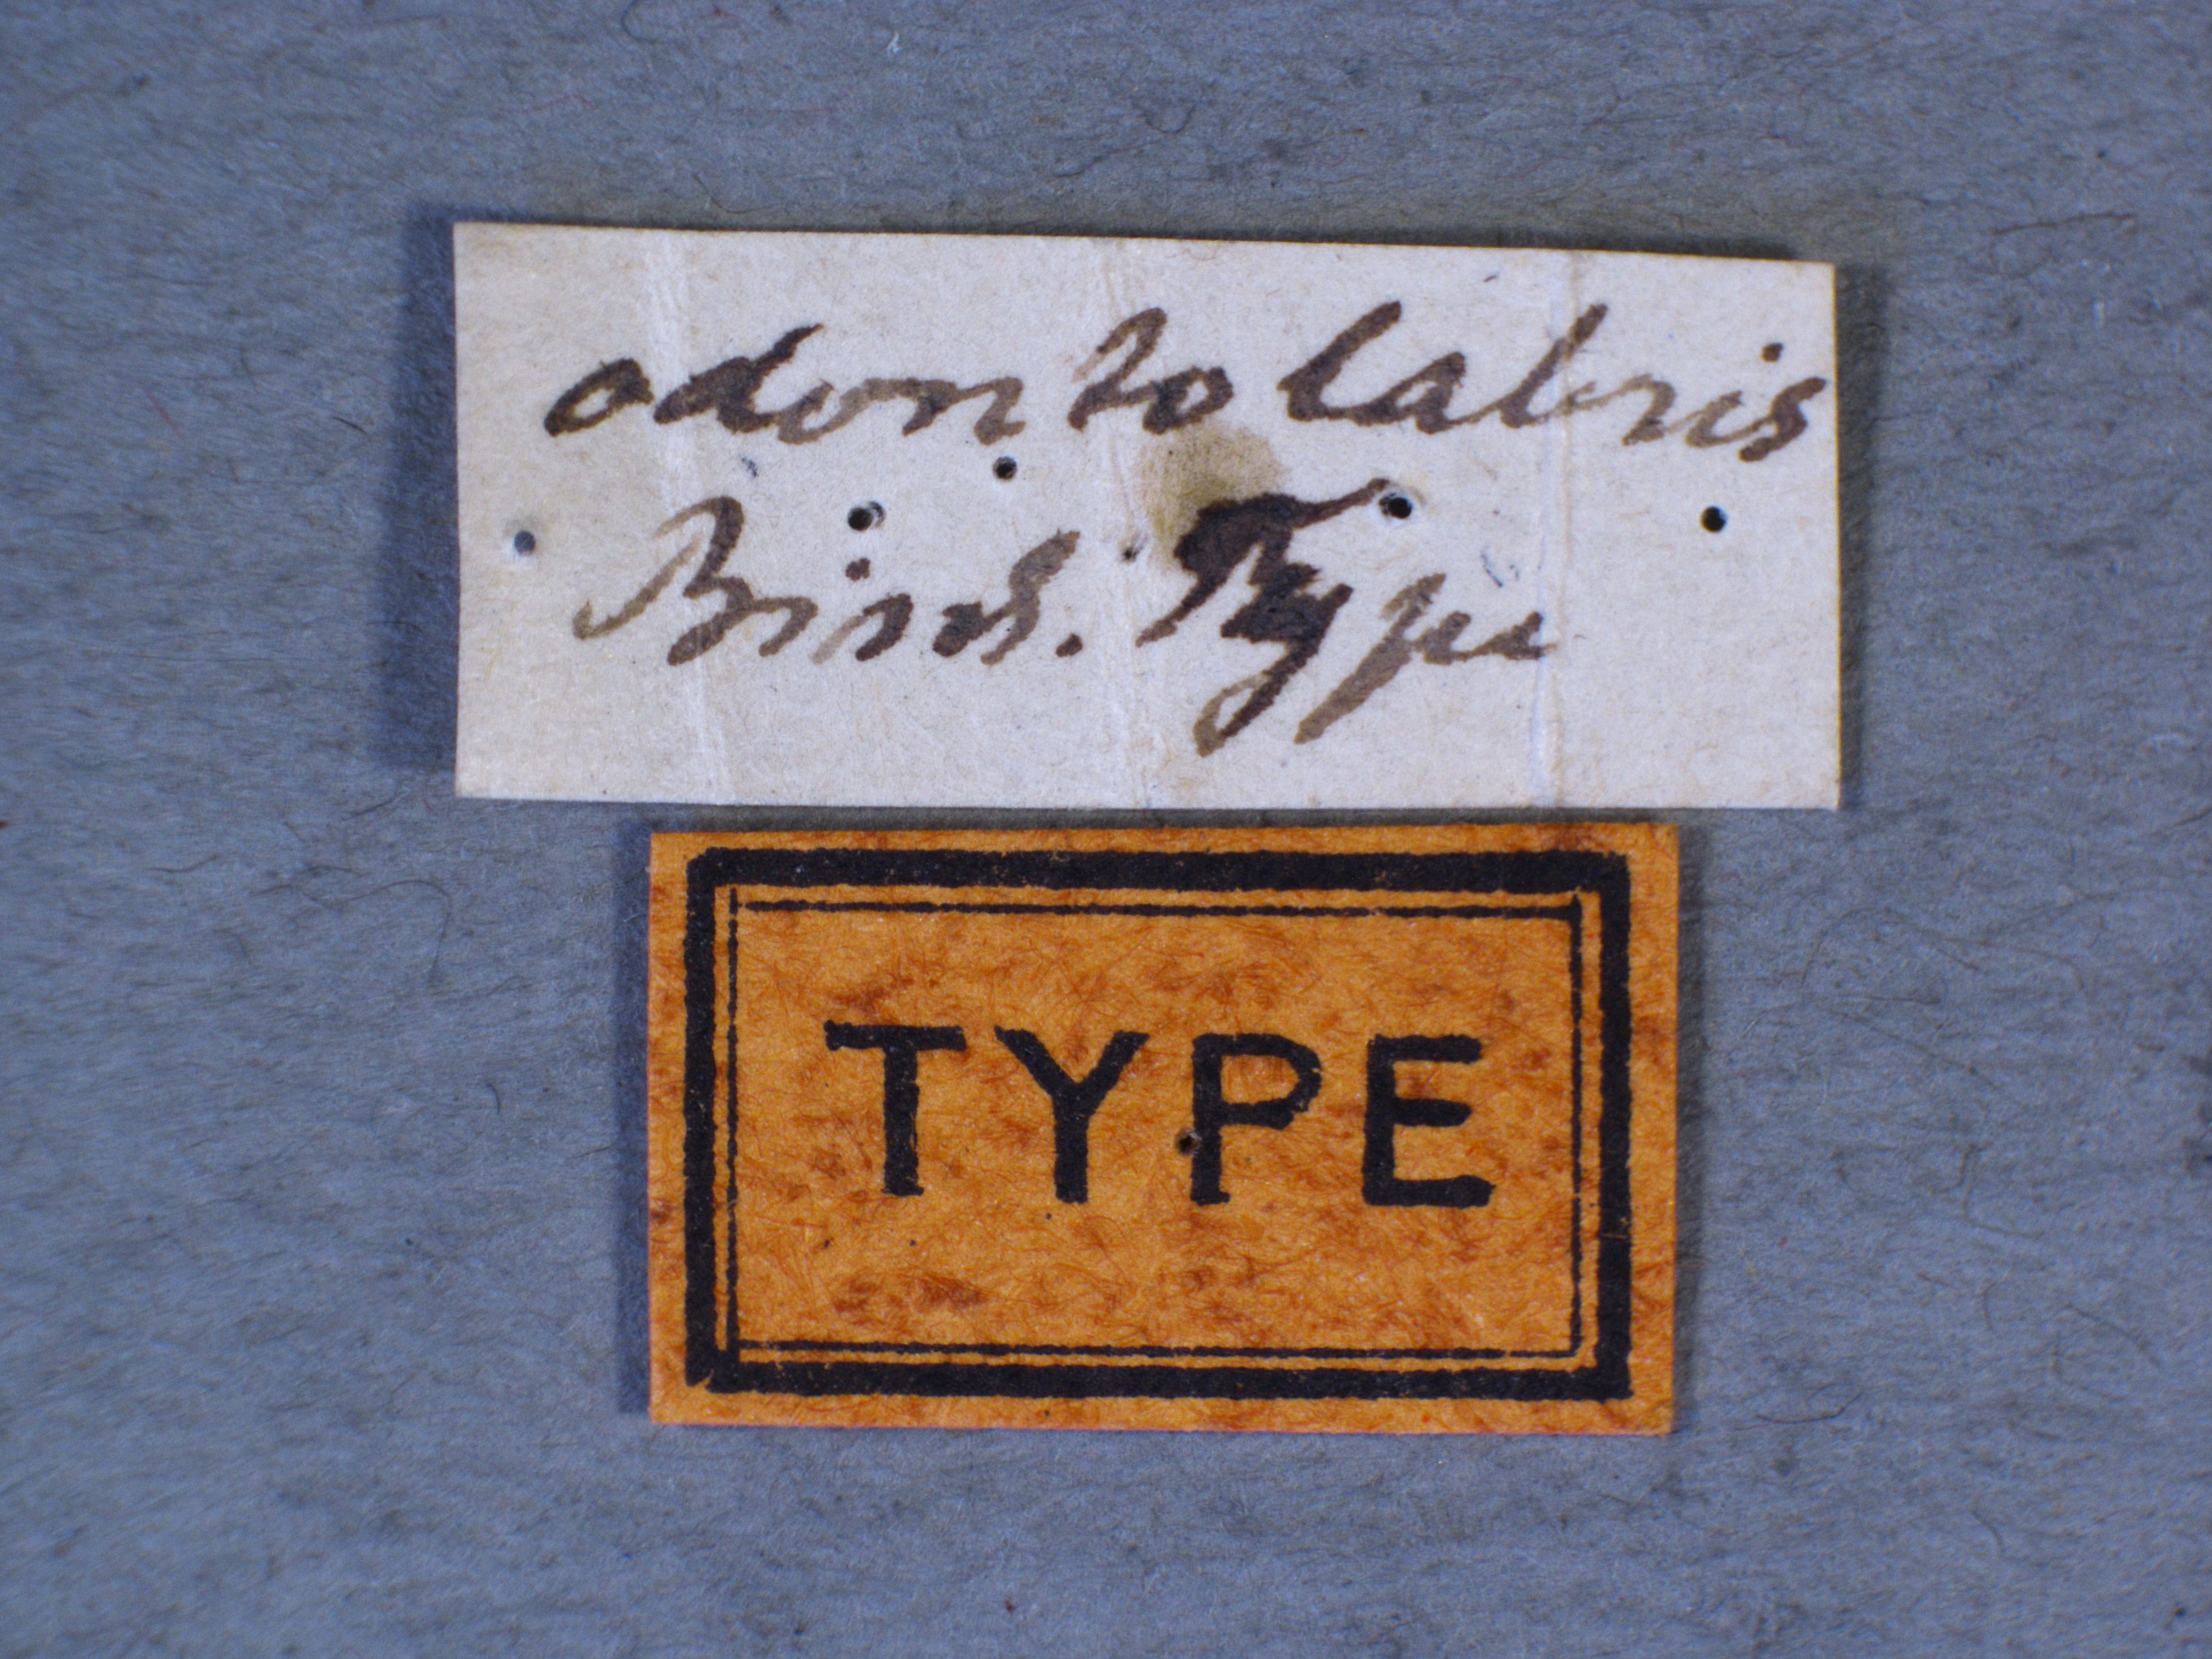 odontolabris
Type
TYPE